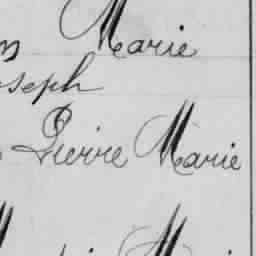 Marie
Joseph
Pierre Marie